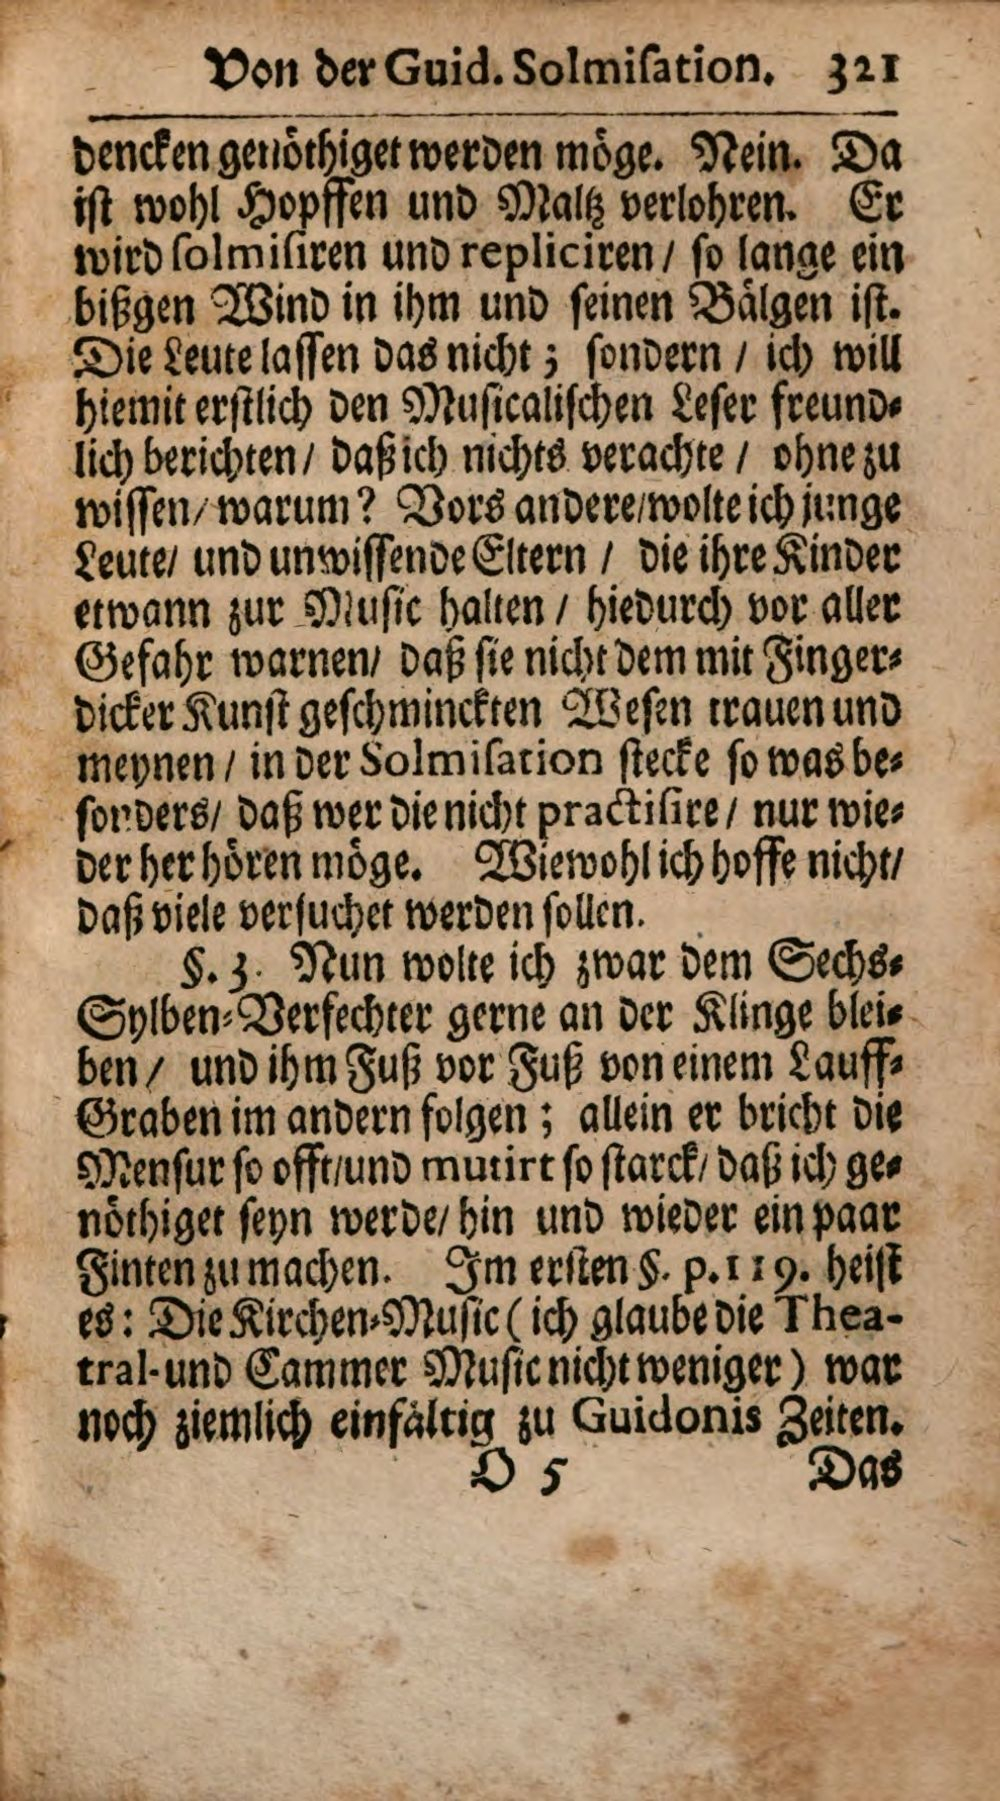 Von der Guid. Solmiſation. 321
dencken genöthiget werden möge. Nein. Da
iſt wohl Hopffen und Maltz verlohren. Er
wird ſolmiſiren und repliciren / ſo lange ein
bißgen Wind in ihm und ſeinen Bälgen iſt.
Die Leute laſſen das nicht; ſondern / ich will
hiemit erſtlich den Muſicaliſchen Leſer freund⸗
lich berichten / daß ich nichts verachte / ohne zu
wiſſen / warum? Vors andere / wolte ich junge
Leute / und unwiſſende Eltern / die ihre Kinder
etwann zur Muſic halten / hiedurch vor aller
Gefahr warnen / daß ſie nicht dem mit Finger⸗
dicker Kunſt geſchminckten Weſen trauen und
meynen / in der Solmiſation ſtecke ſo was be⸗
ſonders / daß wer die nicht practiſire / nur wie⸗
der her hören möge. Wiewohl ich hoffe nicht /
daß viele verſuchet werden ſollen.
§. 3. Nun wolte ich zwar dem Sechs⸗
Sylben⸗Verfechter gerne an der Klinge blei⸗
ben / und ihm Fuß vor Fuß von einem Lauff⸗
Graben im andern folgen; allein er bricht die
Menſur ſo offt / und mutirt ſo ſtarck / daß ich ge⸗
nöthiget ſeyn werde / hin und wieder ein paar
Finten zu machen. Im erſten §. p. 119. heiſt
es: Die Kirchen⸗Muſic (ich glaube die Thea-
tral- und Cammer Muſic nicht weniger) war
noch ziemlich einfältig zu Guidonis Zeiten.
O 5 Das